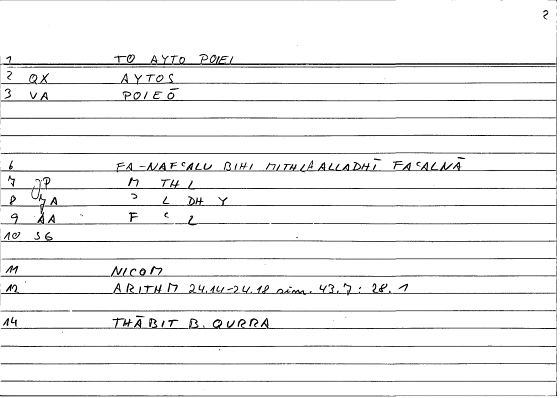 2
1 TO AYTO POIEI
2 QX AYTOS
3 VA POIEŌ
6 FA-NAFᶜALU BIHI MITHLA ALLADHĪ FAᶜALNĀ
7 JP M TH L
8 ZA ᵓ L DH Y
9 AA F ᶜ L
10 SG
11 NICOM
12 ARITHM 24.14-24.18 sim. 43.7 : 28.1
14 THĀBIT B. QURRA